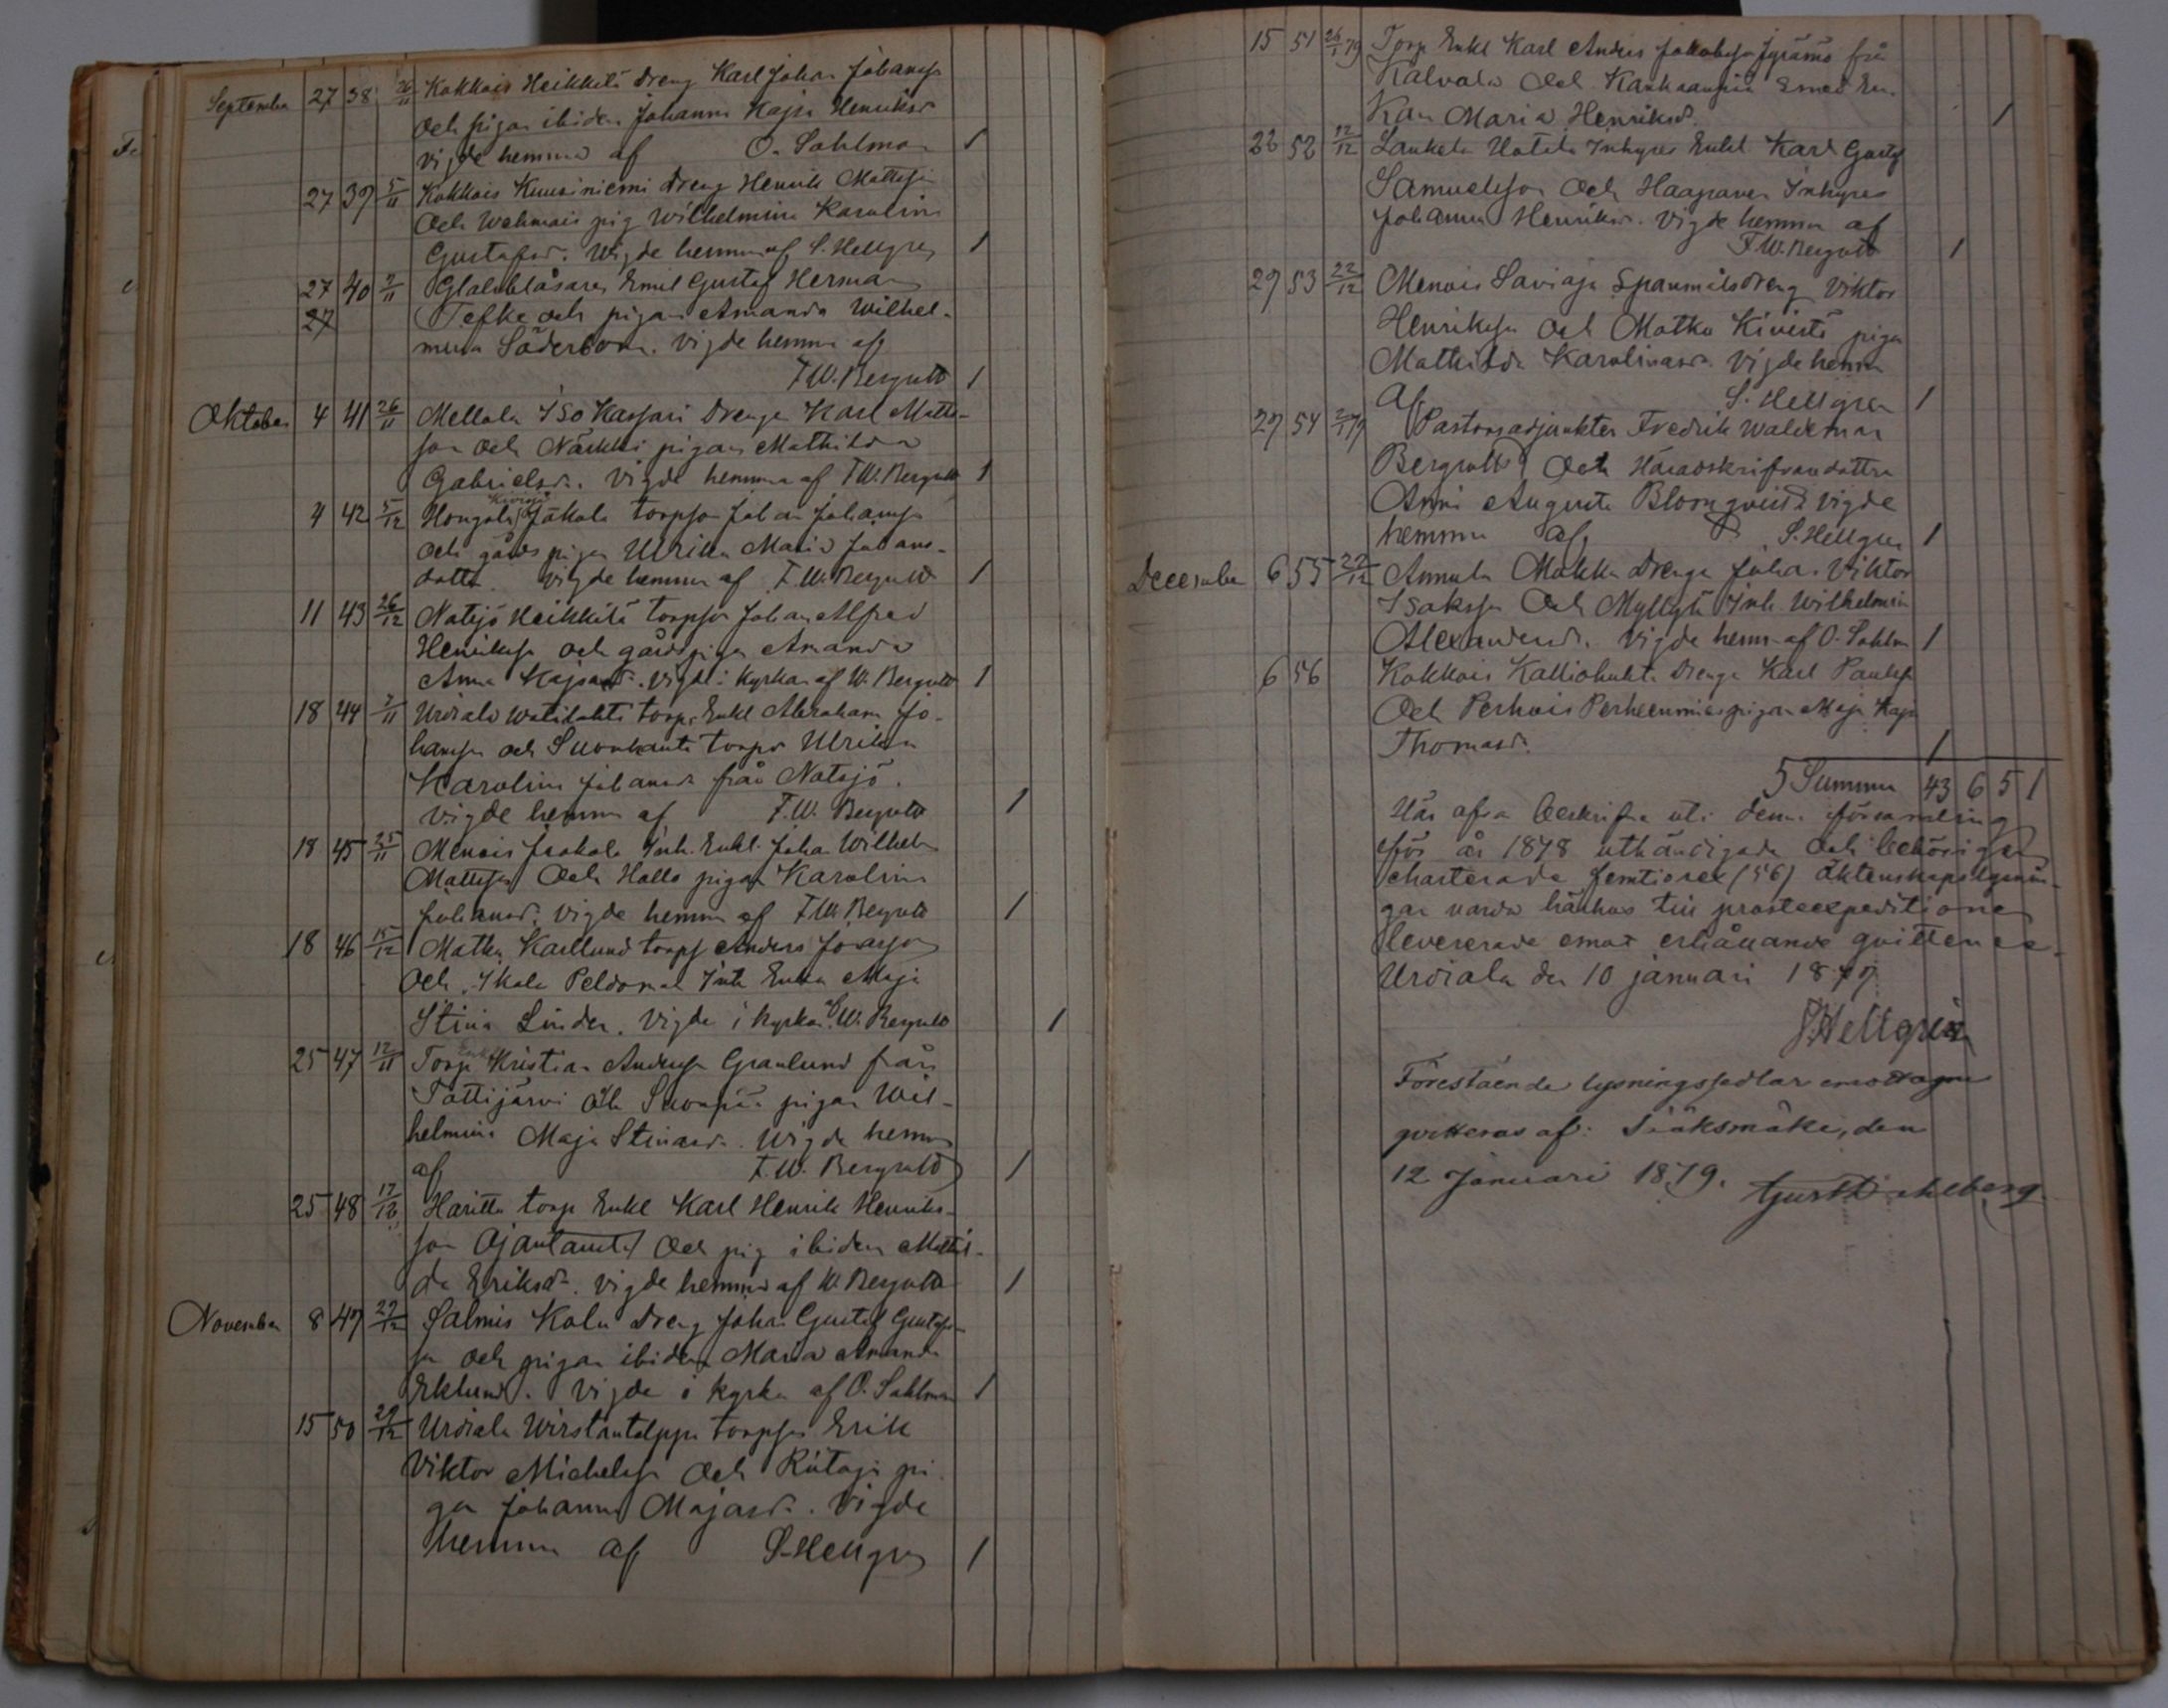 September 27 38 26/11 Kokkois Heikkilä dreng Karl Johan Johanss
och pigan ibidem Johanna Kajsa Henriksd
vigde hemma af O. Sahlman 1
27 39 5/11 Kokkois Kuusiniemi dreng Henrik Mattss
Och Wahmais pig Wilhelmina Karolina
Gustafsd. Wigde hemma af S. Hellgren 1
27 40 3/11 Glasblåsaren Emil Gustaf Herman
27 Tefke och pigan Amanda Wilhel-
mina Söderbom. vigde hemma af
F.W. Bergroth 1
Oktober 4 41 26/11 Mellola Iso Kassari drengen Karl Matts-
son och Närkki pigan Mathilda
Gabrielsd. Vigde hemma af F.W. Bergroth 1
4 42 5/12 Hongola Jakola torpson Johan Johanss
och gårdspigan Ulrika Maria Johans-
dotter vigde hemma af F.W. Bergroth 1
11 43 26/12 Notsjö Heikkilä torpson Johan Alfred
Henrikss och gårdspigan Amanda
Anna Kajsasd. vigde i kyrkan af W. Bergroth 1
18 44 3/11 Urdiala torp. Enkl Abraham Jo-
hanss och torps Ulrika
Karolina Johansd från Notsjö.
vigde hemma af F.W. Bergroth 1
18 45 25/11 Menois Jaakola Inh. Enkl. Johan Wilhelm
Mattsson Och Hallo pigan Karolina
Johansd. vigde hemma af F.W. Bergroth 1
18 46 15/12 Matku Karllund torps Anders
Och Peldomal Inh Enka Maja
Stina Linder. Vigde i kyrkan af W. Bergroth 1
25 47 12/11 Torp Kristian Anderss Granlund från
Tottijärvi Och pigan Wil-
helmina Maja Stinasd. Wigde hemma
af F.W. Bergroth 1
25 48 17/12 Haritta torp Enkl Karl Henrik Henriks-
son Ajantausta Och pig ibidem Mathil-
da Eriksd. vigde hemma af W. Bergroth 1
November 8 49 29/12 Salmis Kolu dreng Johan Gustaf Gustafs-
sn och pigan ibidem Maria Amanda
Eklund. Vigde i kyrka af O. Sahlman 1
15 50 29/12 Urdiala torpson Erik
Viktor Michelss Och pi
gan Johanna Majasd. Vigde
hemma af S. Hellgren 1
15 51 26/1 79 Torp Enkl Karl Anders Jakobsson från
Kalvola Och
Maria Henriksd. 1
22 52 12/12 Laukela Uotila Inhyses Enkl Karl Gustaf
Samuelsson Och Haapanen Inhyses
Johanna Henriksd. Vigde hemma af
F.W. Bergroth 1
29 53 22/12 Menois Saviaja Spanmålsdreng Viktor
Henrikss Och Matku Kivistö pigan
Mathilda Karolinasd. Vigde hemma
Af S. Hellgren 1
29 54 2/1 79 Pastorsadjunkten Fredrik Waldemar
Bergroth Och Häradsskrifvaredottren
Anni Augusta Blomqvist vigde
hemma af S. Hellgren 1
December 6 55 29/12 Annula Makka drengen Johan Viktor
Isaksson Och Myllylä Inh. Wilhelmina
Alexandersd. Vigde hemma af O. Sahlm 1
6 56 Kokkois Kalliohuhta drengen Karl Paulss
Och Perhois pigan Maja Kajsa
Thomasd. 1
Summa 43 6 5 1
uti denna församling
för år 1878 uthändigade Och behörigen
charterade femtiosex (56) äktenskapslysnin-
gar varda härhos till prosteexpeditionen
levererade emot erhållande qvittence.
Urdiala den 10 januari 1879.
S. Hellgren
Förestående lysningssedlar emottagna
qvitteras af: Sääksmäki, den
12 Januari 1879. Gust. Dahlberg